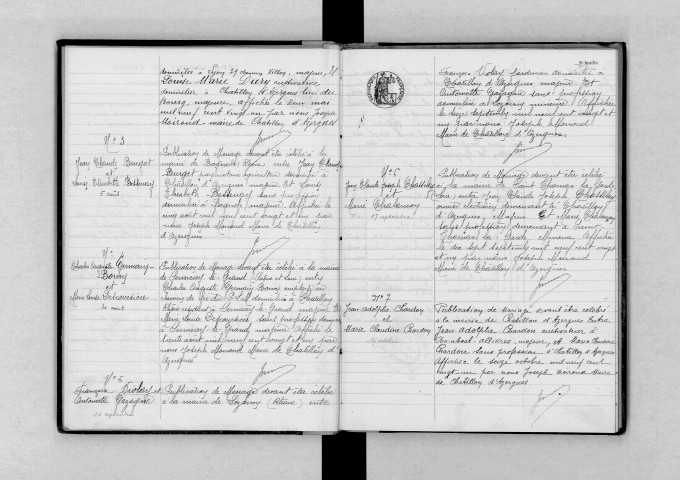 domiciliée à Lyon 29 majeure
Louise Marie Dury cultivatrice
domiciliée à Chatillon d'Azergues lieu du
Bourg, majeure, affichée le deux mai
mil neuf cent vingt un par nous Joseph
Moiroud maire de Chatillon d'Azergues
N° 3
Jean Claude Burgat
et
Louise Elisabeth Bessenay
5 août
Publication de Mariage devant être célébré à la
mairie de Bagnols Rhône entre Jean Claude
Burgat domicilié à
Châtillon d'Azergues majeur Et Louise
Elisabeth Bessenay sans profession
domiciliée à Bagnols, majeure. Affichée le
cinq août mil neuf cent vingt et un par
nous Joseph Moiroud Maire de Chatillon
d'Azergues
N°
Charles Auguste Germain
Borny
et
Marie Louise
30 août
Publication de Mariage devant être célébré à la mairie
de Sennecey le Grand Saône et Loire entre
Charles Auguste Germain Borny employé au
chemin de fer du P.L.M domicilié à Chatillon
à Sennecey le Grand majeur Et
Marie Louise sans profession demeurant
à Sennecey le Grand majeure Affiché le
trente août mil neuf cent vingt et un par
nous Joseph Moiroud Maire de Chatillon d'
Azergues
N° 5
François Violay et
Antoinette Gazagne
16 septembre
Publication de Mariage devant être célébré
à la mairie de Lozanne (Rhône) entre
François Violay jardinier domicilié à
Chatillon d'Azergues majeur Et
Antoinette Gazagne sans profession
domiciliée à Lozanne mineure. Affichée
le seize septembre mil neuf cent vingt et
un par nous Joseph Moiroud
Maire de Chatillon d'Azergues
N° 6
Jean Claude Joseph Chasselay
et
Marie Chalancy
17 septembre
Publication de Mariage devant être célébré
à la mairie de Saint Thomas la Garde
Loire entre Jean Claude Joseph Chasselay
ouvrier électricien demeurant à Chatillon
d'Azergues, Majeur Et Marie Chalancy
sans profession demeurant à Saint
Thomas la Garde mineure Affichée
le dix sept septembre mil neuf cent vingt
et un par nous Joseph Moiroud
Maire de Chatillon d'Azergues
N° 7
Jean Adolphe Chardon
et
Marie Claudine Chardon
16 octobre
Publication de Mariage devant être célébré
à la mairie de Châtillon d'Azergues Entre
Jean Adolphe Chardon cultivateur à
majeur, et Marie Claudine
Chardon sans profession à Chatillon d'Azergues
Affichée le seize octobre mil neuf cent
vingt-un par nous Joseph Moiroud Maire
de Chatillon d'Azergues